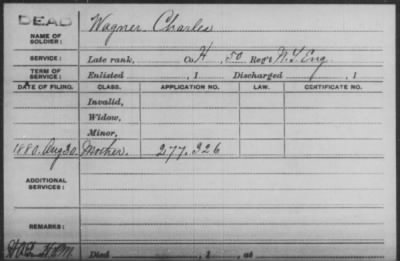 DEAD
NAME OF SOLDIER: Wagner, Charles
SERVICE: Late rank, Co. H, 50 Reg't N.Y. Eng.
TERM OF SERVICE: Enlisted , 1 Discharged , 1
DATE OF FILING. CLASS. APPLICATION NO. LAW. CERTIFICATE NO.
Invalid,
Widow,
Minor,
1880. Aug 30. Mother. 277.326
ADDITIONAL SERVICES:
REMARKS:
Died , 1 , at